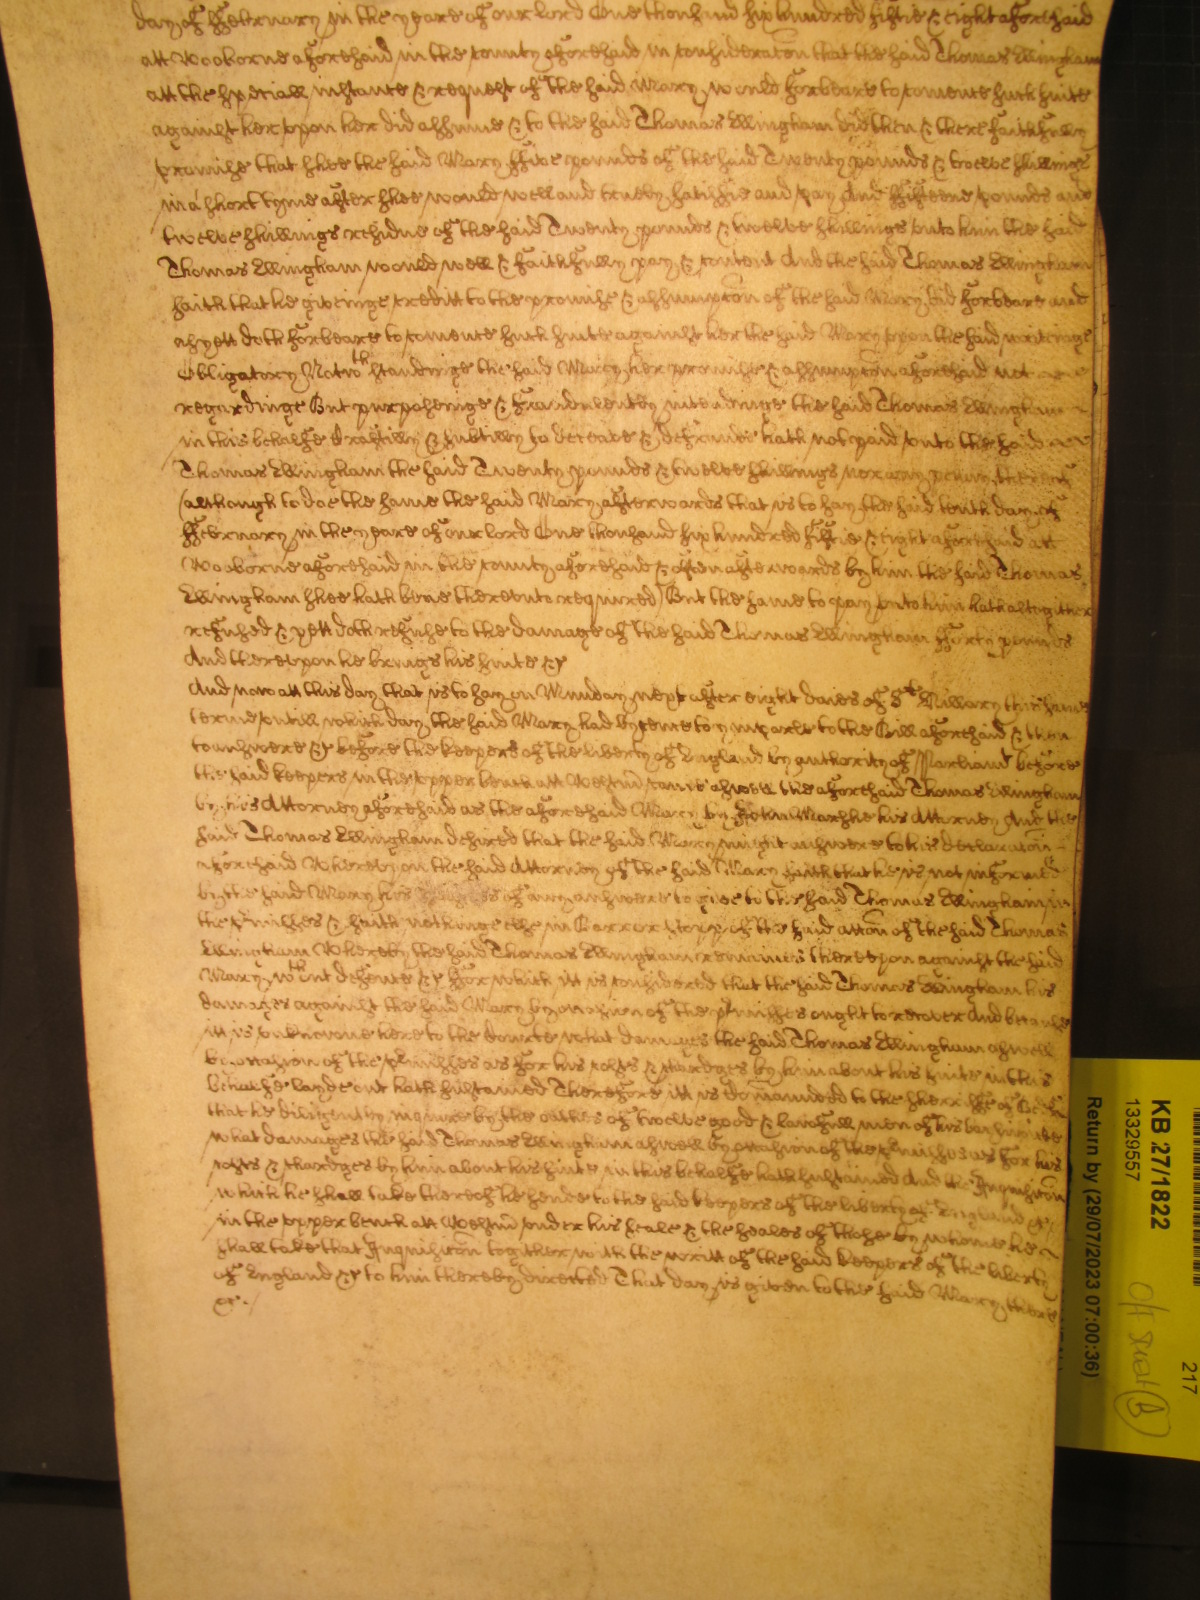 day of ffebruary in the yeare of our lord One thousand six hundred fiftie & eight aforesaid
att Wooborne aforesaid in the county aforesaid in consideracon that the said Thomas Ellingham
att the speciall instance & request of the said Mary would forbeare to comence such suite
against her upon her did assume & to the said Thomas Ellingham did then & there faithfully
promise that shee the said Mary ffive pounds of the said Twenty pounds & twelve shillings
in a short tyme after shee would well and truely satisfie and pay And ffifteene pounds and
twelve shillings residue of the said Twenty pounds & twelve shillings unto him the said
Thomas Ellingham would well & faithfully pay & content And the said Thomas Ellingham
saith that he giveinge creditt to the promise & assumpcon of the said Mary did forbeare and
as yett doth forbeare to comence such suite against her the said Mary upon the said writeinge
Obligatory Notwth standinge the said Mary her promise & assumpcon aforesaid not
regardinge But purposeinge & fraudulently intendinge the said Thomas Ellingham
in this behalfe craftily & subtilly to deceave & defraude hath not paid unto the said
Thomas Ellingham the said Twenty pounds & twelve shillings nor any penny thereof
(although to doe the same the said Mary afterwards that is to say the said tenth day of
ffebruary in the yeare of our lord One thousand six hundred fiftie & eight aforesaid att
Wooborne aforesaid in the county aforesaid & often afterwards by him the said Thomas
Ellingham shee hath bene thereunto required) But the same to pay unto him hath altogither
refused & yett doth refuse to the damage of the said Thomas Ellingham fforty pounds
And thereupon he brings his suite &c
And now att this day that is to say on Munday next after eight daies of St Hillary this same
terme untill which day the said Mary had lycence to imparle to the Bill aforesaid & then
to answere &c before the keepers of the liberty of England by authority of Parliamt before
the said keepers in the upper bench att Westmr came aswell the aforesaid Thomas Ellingham
by his Attorney aforesaid as the aforesaid Mary by John Marshe his Attorney And the
said Thomas Ellingham desired that the said Mary might answere to his declaracon
aforesaid Whereupon the said Attorney of the said Mary saith that he is not informed
by the said Mary his of any answere to give to the said Thomas Ellingham in
the pmisses & saith nothinge else in Barr or stopp of the said accon of the said Thomas
Ellingham Whereby the said Thomas Ellingham remaines thereupon against the said
Mary wthout defence &c ffor which itt is considered that the said Thomas Ellingham his
damages against the said Mary by occasion of the pmisses ought to recover And because
itt is unknowne here to the Courte what damages the said Thomas Ellingham aswell
by occasion of the pmisses as for his costs & chardges by him about his suite in this
behalfe layde out hath sustained Therefore itt is comaunded to the sherriffe of
that he diligently inquire by the oathes of twelve good & lawfull men of his bailiwicke
what damages the said Thomas Ellingham aswell by occasion of the pmisses as for his
costs & chardges by him about his suite in this behalfe hath sustained And the Inquisicon
which he shall take thereof he sende to the said keepers of the liberty of England &c
in the upper bench att Westmr under his seale & the seales of those by whome he
shall take that Inquisicon togither with the writt of the said keepers of the liberty
of England &c to him thereby directed That day is given to the said Mary there
&c.
KB 27/1822
13329557
Return by (29/07/2023 07:00:36)
217